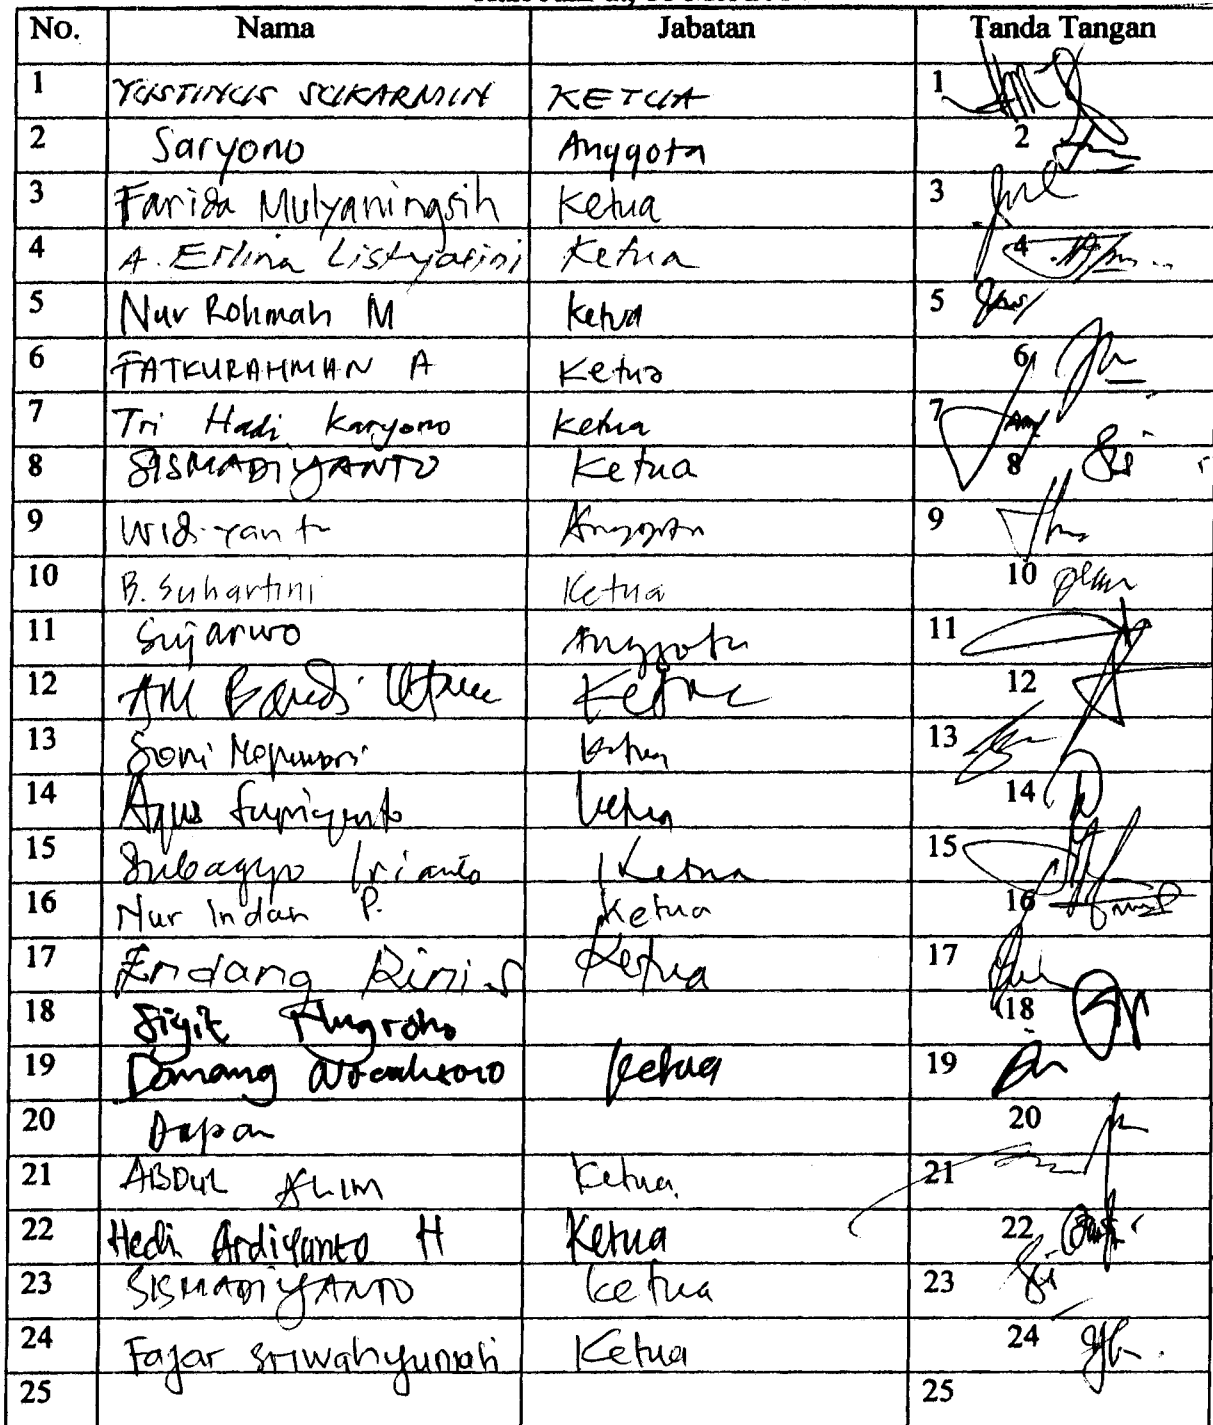 No. Nama Jabatan Tanda Tangan
1 YUSTINUS SUKARMIN KETUA 1
2 Saryono Anggota 2
3 Farida Mulyaningsih Ketua 3
4 A. Erlina Listyarini Ketua 4
5 Nur Rohmah M Ketua 5
6 FATKURAHMAN A Ketua 6
7 Tri Hadi Karyono Ketua 7
8 SISMADIYANTO Ketua 8
9 Widiyanto Anggota 9
10 B. Suhartini Ketua 10
11 Sujarwo Anggota 11
12 AM Bandi Utama Ketua 12
13 Soni Nopembri Ketua 13
14 Agus Supriyanto Ketua 14
15 Subagyo Irianto Ketua 15
16 Nur Indah P. Ketua 16
17 Endang Rini S Ketua 17
18 Sigit Nugroho 18
19 Danang Wicaksono Ketua 19
20 Dapan 20
21 ABDUL ALIM Ketua 21
22 Hedi Ardiyanto H Ketua 22
23 SISMADIYANTO Ketua 23
24 Fajar Sriwahyuniati Ketua 24
25 25